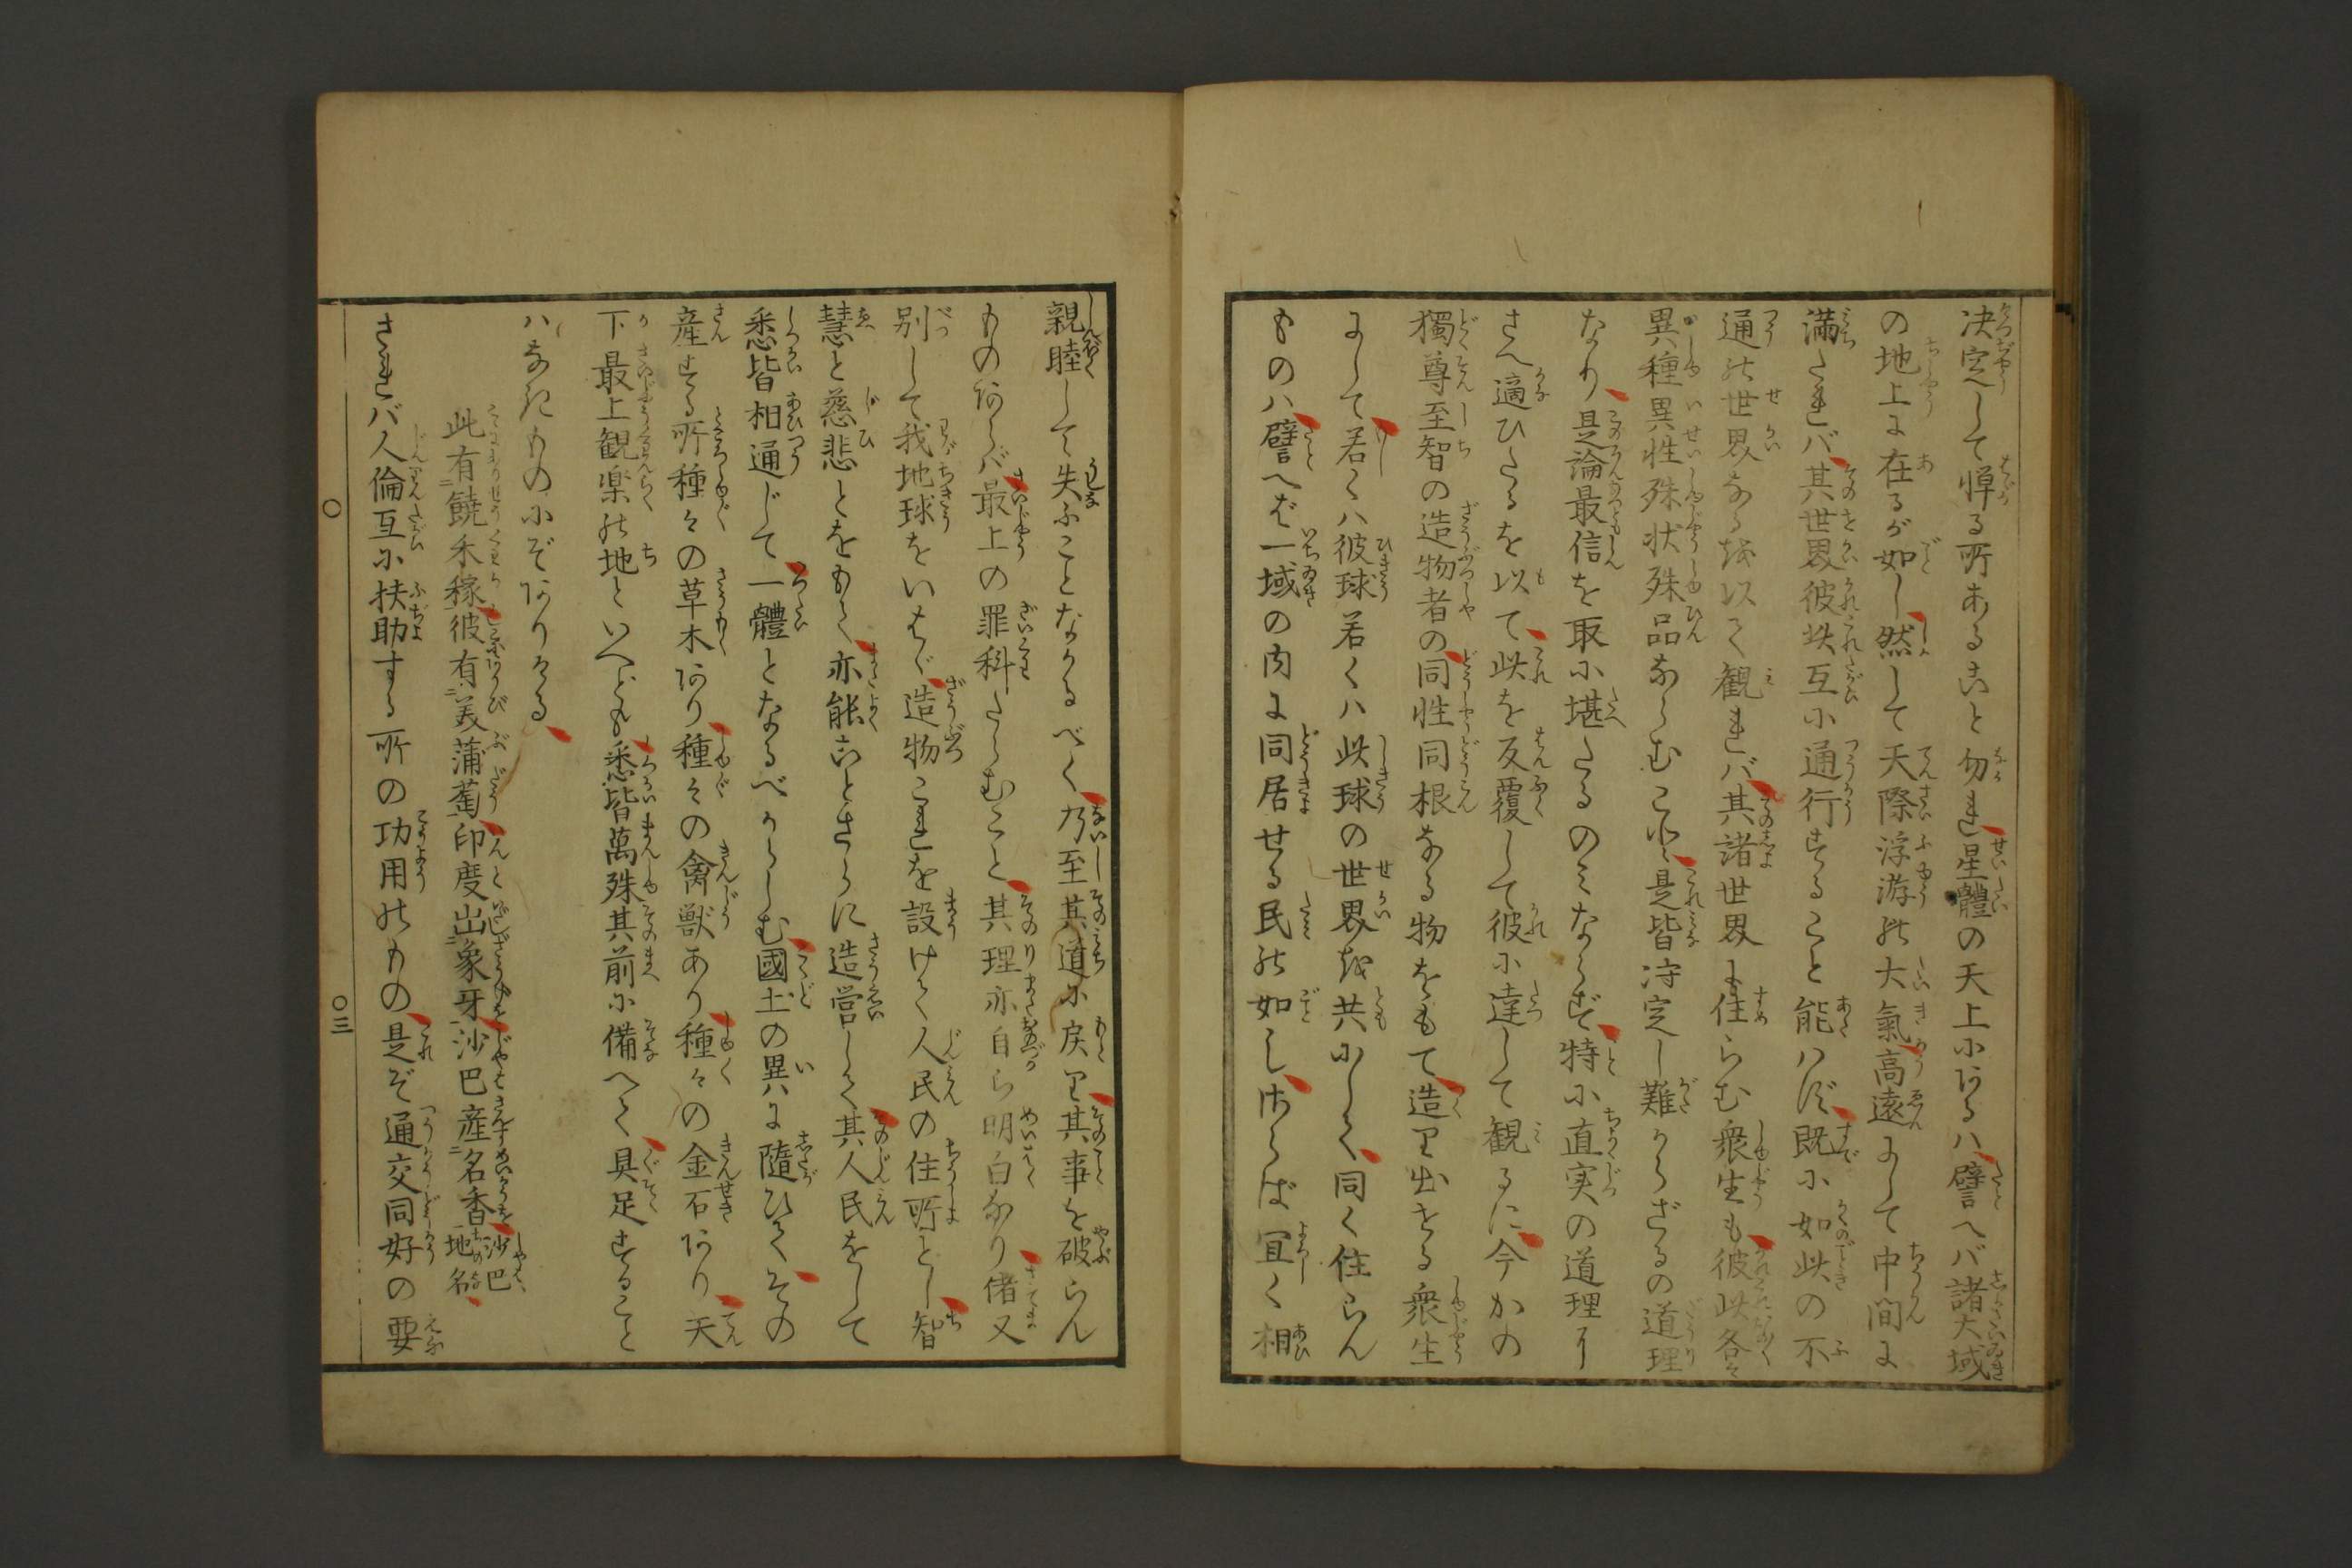 決定して憚る所あるこ​と勿れ星體の天上にあるハ譬へバ諸大域
の地上に在るが如し然して天際浮游の大氣高遠にして中間に
満たれバ其世界彼此互に通行すること能ハず既に如此の不
通の世界なるを以て観れバ其諸世界に住らむ衆生も彼此各々
異種異性殊状殊品ならむこと是皆決定し難からざるの道理
なり是論最信を取に堪たるのミならず特に直実の道理に
さへ適ひたるを以て此を反覆して彼に達して観るに今かの
獨尊至智の造物者の同性同根なる物をもて造り出せる衆生
にして若くハ彼球若くハ此球の世界を共にして同く住らん
ものハ譬へば一域の内に同居せる民の如しさらば宜く相
親睦して失ふことなかるべく乃至其道に戻り其事を破らん
ものあらバ最上の罪科たらむこと其理亦自ら明白なり偖又
別して我地球をいはゞ造物これを設けて人民の住所とし智
慧と慈悲とをもて亦能ことさらに造営して其人民をして
悉皆相通じて一體となるべからしむ國土の異に隨ひてその
産する所種々の草木あり種々の禽獣あり種々の金石あり天
下最上観楽の地といへども悉皆萬殊其前に備へて具足すること
ハなきものにぞありける
此有饒禾稼彼有美蒲萄印度出象牙沙巴産名香沙巴地名
されバ人倫互に扶助する所の功用のもの是ぞ通交同好の要
〇三